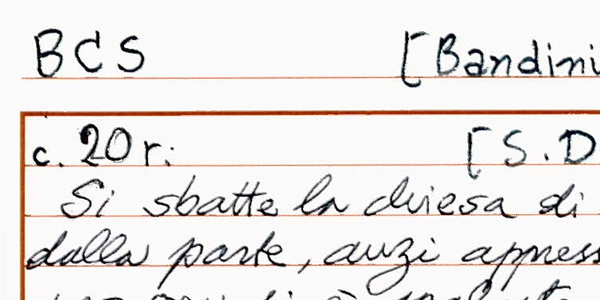 BCS [Bandini
c. 20 r: [S. D
Si sbatte la chiesa di
dalla parte, anzi appress